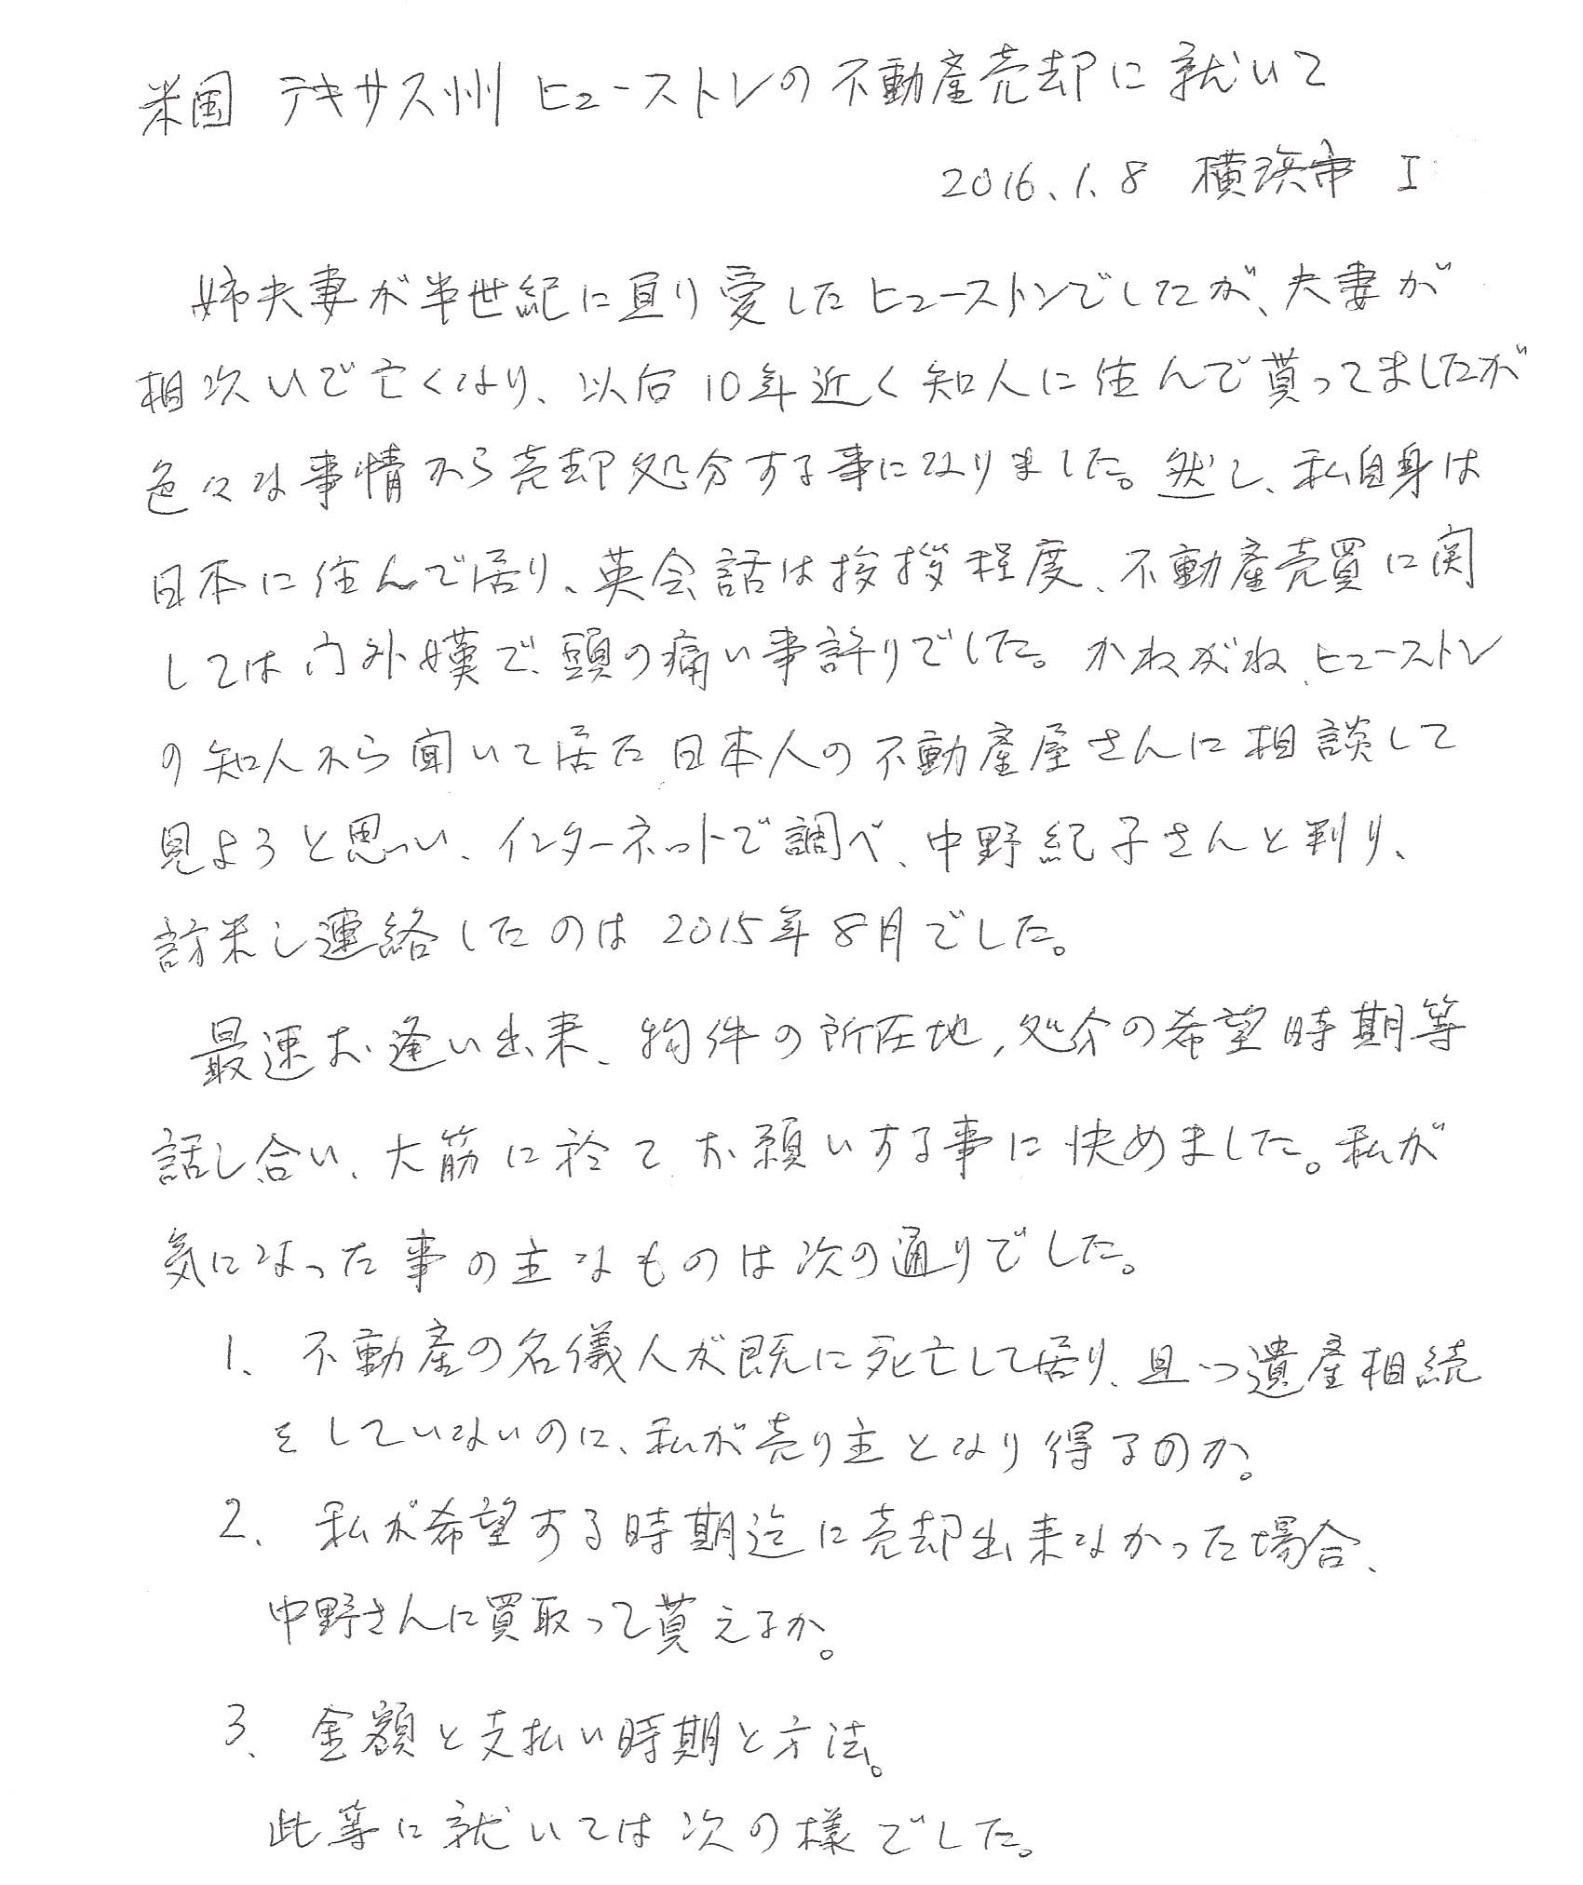 米国 テキサス州 ヒューストンの不動産売却に就いて
2016.1.8 横浜市 I
姉夫妻が半世紀に亘り愛したヒューストンでしたが、夫妻が
相次いで亡くなり、以后10年近く知人に住んで貰ってましたが
色々な事情から売却処分する事になりました。然し、私自身は
日本に住んで居り、英会話は挨拶程度、不動産売買に関
しては門外漢で、頭の痛い事許りでした。かねがね、ヒューストン
の知人から聞いて居た日本人の不動産屋さんに相談して
見ようと思い、インターネットで調べ、中野紀子さんと判り、
訪米し連絡したのは2015年8月でした。
最速お逢い出来、物件の所在地,処分の希望時期等
話し合い、大筋に於てお願いする事に決めました。私が
気になった事の主なものは次の通りでした。
1、不動産の名儀人が既に死亡して居り、且つ遺産相続
をしていないのに、私が売り主となり得るのか。
2、私が希望する時期迄に売却出来なかった場合、
中野さんに買取って貰えるか。
3、金額と支払い時期と方法。
此等に就いては次の様でした。